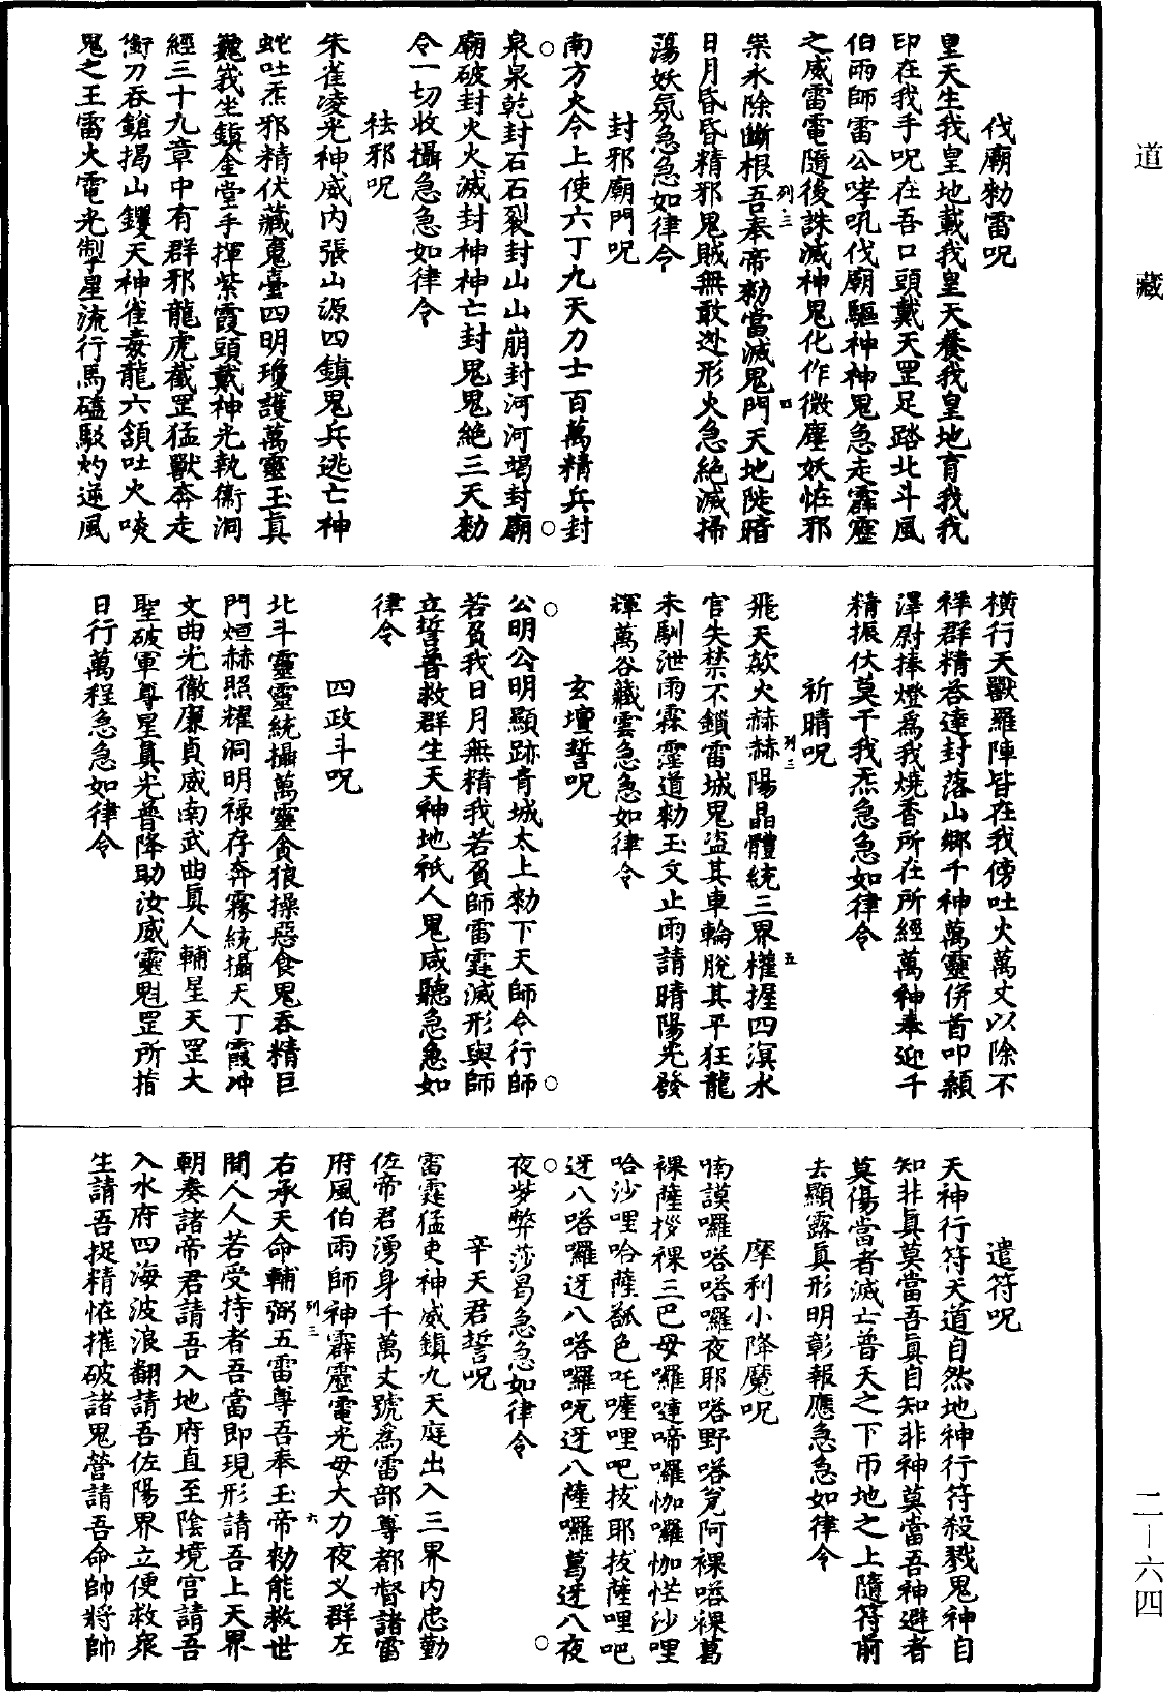 道藏
伐廟勑雷呪
皇天生我皇地載我皇天養我皇地育我我
印在我手呪在吾口頭戴天罡足踏北斗風
伯雨師雷公哮吼伐廟驅神神鬼急走霹靂
之威雷電隨後誅滅神鬼化作微塵妖怪邪
祟永除斷根吾奉帝勑當滅鬼門天地陡暗
列三
四
日月昏昏精邪鬼賊無敢迯形火急絕滅掃
蕩妖氛急急如律令
封邪廟門呪
南方火令上使六丁九天力士百萬精兵封
泉泉乾封石石裂封山山崩封河河竭封廟
廟破封火火滅封神神亡封鬼鬼絕三天勑
令一切收攝急急如律令
袪邪呪
朱雀凌光神威內張山源四鎮鬼兵逃亡神
蛇吐炁邪精伏藏嵬臺四明瓊護萬靈玉真
巍峩坐鎮金堂手揮紫霞頭戴神光執衛洞
經三十九章中有群邪龍虎截罡猛獸奔走
銜刀吞鎗揭山钁天神雀毒龍六頷吐火啖
鬼之王雷火電光掣星流行馬磕駮灼逆風
橫行天獸羅陣皆在我傍吐火萬丈以除不
祥群精吞達封落山鄉千神萬靈併首叩顙
澤尉捧燈為我燒香所在所經萬神奉迎千
精振伏莫干我炁急急如律令
祈晴呪
飛天歘火赫赫陽晶體統三界權握四溟水
列三
五
官失禁不鎖雷城鬼盜其車輪脫其平狂龍
未馴泄雨霖霪道勑玉文止雨請晴陽光發
輝萬谷藏雲急急如律令
玄壇誓呪
公明公明顯跡青城太上勑下天師令行師
若負我日月無精我若負師雷霆滅形與師
立誓普救群生天神地祇人鬼咸聽急急如
律令
四政斗呪
北斗靈靈統攝萬靈貪狼操惡食鬼吞精巨
門烜赫照耀洞明祿存奔霧統攝天丁霞冲
文曲光徹廉貞威南武曲真人輔星天罡大
聖破軍尊星真光普降助汝威靈魁罡所指
日行萬程急急如律令
遣符呪
天神行符天道自然地神行符殺戮鬼神自
知非真莫當吾真自知非神莫當吾神避者
莫傷當者滅亡普天之下帀地之上隨符前
去顯露真形明彰報應急急如律令
摩利小降魔呪
喃謨囉嗒嗒囉夜耶嗒野嗒㝹阿裸嗒裸葛
裸薩拶裸三巴母囉噠啼囉伽囉伽恾沙哩
哈沙哩哈薩㽃色吒㘄哩吧拔耶拔薩哩吧
迓八嗒囉迓八嗒囉呪迓八薩囉蔦迓八夜
夜梦弊莎曷急急如律令
辛天君誓呪
雷霆猛吏神威鎮九天庭出入三界內忠勤
佐帝君湧身千萬丈號為雷部尊都督諸雷
府風伯雨師神霹靂電光母大力夜义群左
列三
六
右承天命輔弼五雷尊吾奉玉帝勑能救世
間人人若受持者吾當即現形請吾上天界
朝奏諸帝君請吾入地府直至陰境宫請吾
入水府四海波浪翻請吾佐陽界立便救衆
生請吾捉精怪摧破諸鬼營請吾命帥將帥
二—六四